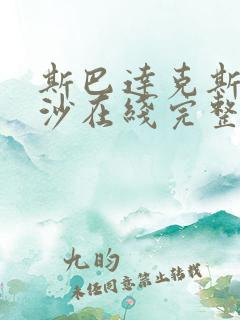 斯巴达克斯
沙在线完整
九昀
未经同意禁止转载